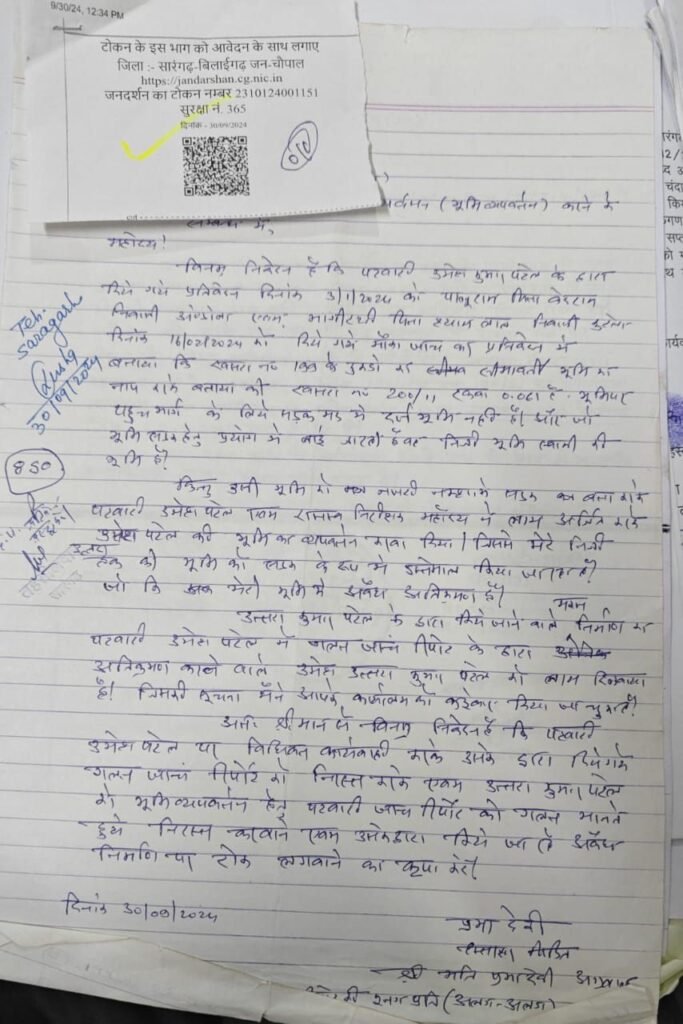 9/30/24, 12:34 PM
टोकन के इस भाग को आवेदन के साथ लगाए
जिला :- सारंगढ़-बिलाईगढ़ जन-चौपाल
https://jandarshan.cg.nic.in
जनदर्शन का टोकन नम्बर 2310124001151
सुरक्षा नं. 365
दिनांक - 30/09/2024
(भूमि व्यपवर्तन) करने के
सम्बन्ध में,
महोदय!
विनम्र निवेदन है कि पटवारी उमेश कुमार पटेल के द्वारा
दिये गये प्रतिवेदन दिनांक 3/1/2024 को पालूराम पिता
निवासी एवम् भागीरथी पिता श्याम लाल निवासी
दिनांक 16/02/2024 को दिये गये मौका जांच का प्रतिवेदन में
बताया कि खसरा नं० 199 के टुकड़ो का सीमावर्ती भूमि का
नाप करके बताया की खसरा नं 200/11 रकबा 0.081 है. भूमि पर
पहुंच मार्ग के लिये सड़क मद में दर्ज भूमि नहीं है। और जो
भूमि सड़क हेतु प्रयोग में लाई जा रही है वह निजी भूमि स्वामी की
भूमि है?
किन्तु उसी भूमि को नजरी नक्शा में सड़क का बता करके
पटवारी उमेश पटेल एवम राजस्व निरीक्षक महोदय ने लाभ अर्जित करके
पटेल की भूमि का व्यपवर्तन करवा दिया। जिसमे मेरे निजी
हक की भूमि को सड़क के रूप में इस्तेमाल किया जा रहा है?
जो कि मेरी भूमि में अवैध अतिक्रमण है?
उत्तरा कुमार पटेल के द्वारा किये जाने वाले मकान निर्माण का
पटवारी उमेश पटेल ने गलत जांच रिपोर्ट के द्वारा
अतिक्रमण करने वाले उत्तरा कुमार पटेल को लाभ दिलवाया
है। जिसकी सूचना मैंने आपके कार्यालय को किया जा चुका है?
अतः श्रीमान से विनम्र निवेदन है कि पटवारी
उमेश पटेल पर विधिवत कार्यवाही करके उनके द्वारा दिये गये
गलत जांच रिपोर्ट को निरस्त करके एवम उत्तरा कुमार पटेल
को भूमि व्यपवर्तन हेतु पटवारी जांच रिपोर्ट को गलत मानते
हुये निरस्त करवाने एवम उनके द्वारा किये जा रहे अवैध
निर्माण पर रोक लगवाने का कृपा करे।
दिनांक 30/09/2024
प्रभा देवी
श्री मति प्रभा देवी
(अलग-अलग)
Teh.
Saragarh
30/09/2024
850